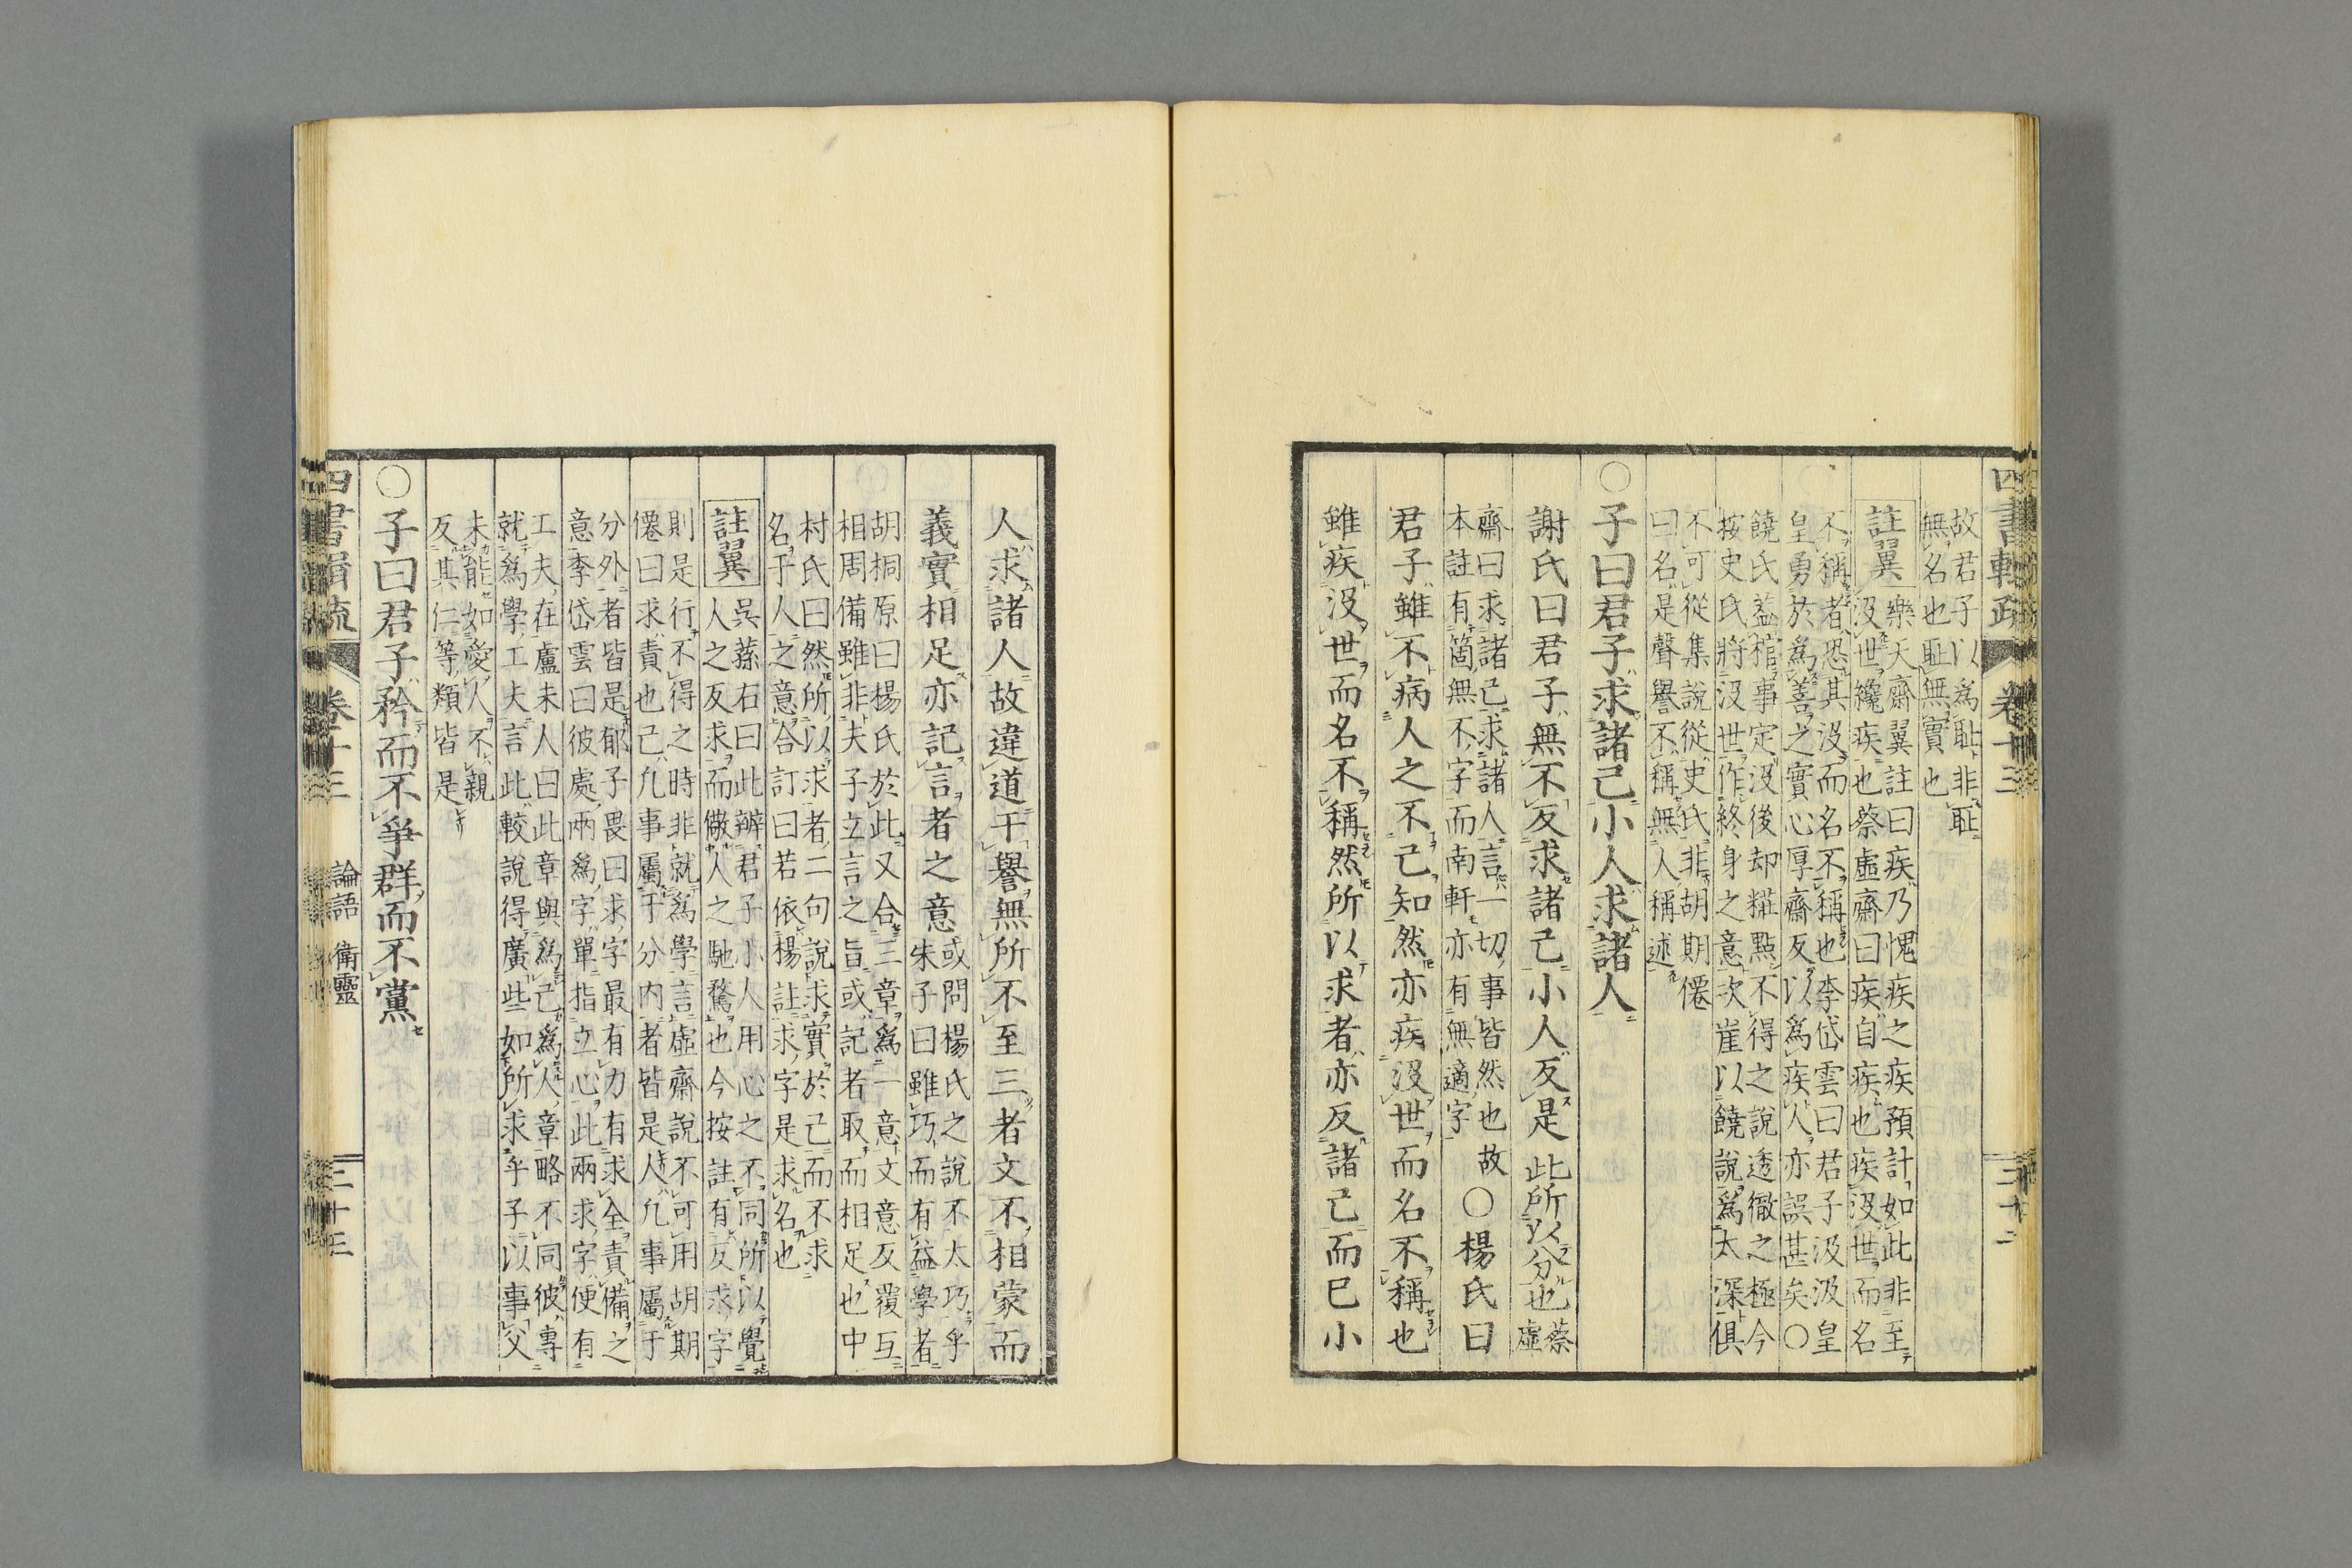 故君子以爲耻非耻
無名也耻無實也
註翼
樂天齋翼註曰疾乃愧疾之疾預計如此非至
沒世纔疾也蔡虛齋曰疾自疾也疾沒世而名
不稱者恐其沒而名不稱也李岱雲曰君子汲汲皇
皇勇於為善之實心厚齋反以為疾人亦誤甚矣○
饒氏蓋棺事定沒後却糚點不得之說透徹之極今
按史氏將沒世作終身之意次崖以饒說爲太深俱
不可從集說從史氏非胡期僊
曰名是聲譽不稱無人稱述
○子曰君子求諸己小人求諸人
謝氏曰君子無不反求諸己小人反是此所以分也蔡
虛
齋曰求諸己求諸人言一切事皆然也故
本註有箇無不字而南軒亦有無適字
○楊氏曰
君子雖不病人之不己知然亦疾沒世而名不稱也
雖疾沒世而名不稱然所以求者亦反諸己而已小
四書輯疏 卷十三 三十二
人求諸人故違道干譽無所不至三者文不相蒙而
義實相足亦記言者之意
或問楊氏之說不太巧乎
朱子曰雖巧而有益學者
胡桐原曰楊氏於此又合三章為一意文意反覆互
相周備雖非夫子立言之旨或記者取而相足也中
村氏曰然所以求者二句說求實於己而不求
名于人之意合訂曰若依楊註求字是求名也
註翼
吳蓀右曰此辨君子小人用心之不同所以覺
人之反求而儆人之馳騖也今按註有反求字
則是行不得之時非就為學言虛齋說不可用胡期
僊曰求責也己凡事屬于分內者皆是人凡事屬于
分外者皆是郁子畏曰求字最有力有求全責備之
意李岱雲曰彼處兩爲字單指立心此兩求字便有
工夫在盧未人曰此章與爲己爲人章略不同彼專
就爲學工夫言此較說得廣些如所求乎子以事父
未能如愛人不親
反其仁等類皆是
○子曰君子矜而不爭群而不黨
四書輯疏 卷十三 論語 衛靈 三十三